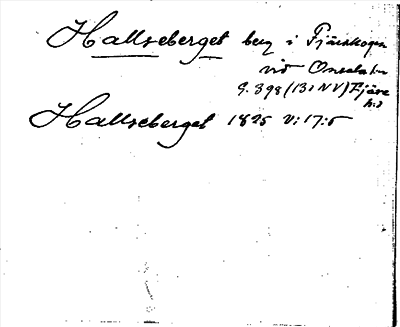 Hallseberget berg i Fjärskogen
vid Onsala kn
S. 398 (13 i NV) Fjäre
hd
Hallseberget 1825 V:17:5